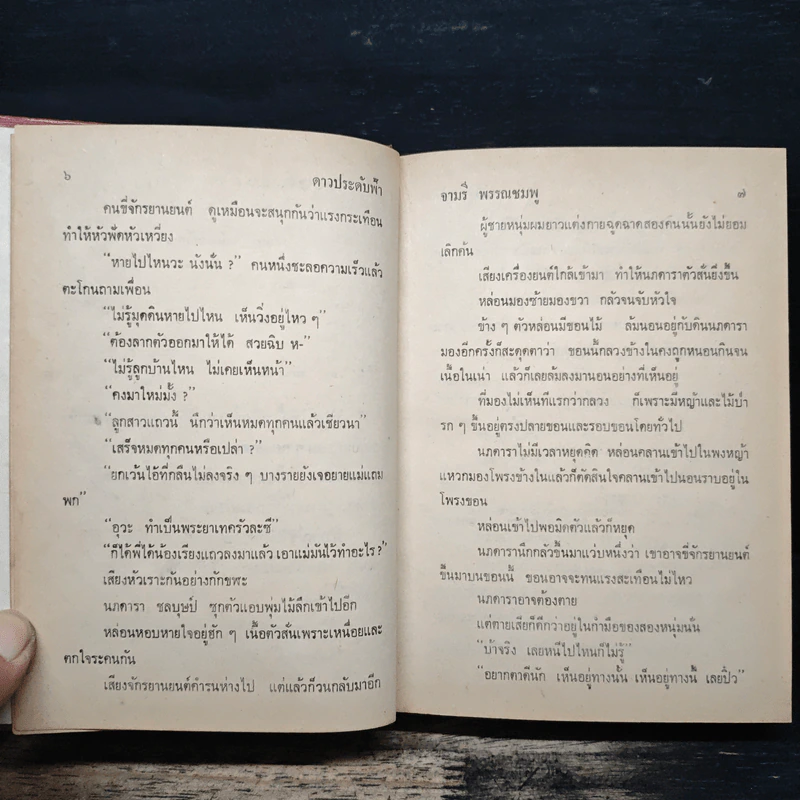 ๖
ดาวประดับฟ้า
คนขี่จักรยานยนต์ ดูเหมือนจะสนุกกันว่าแรงกระเทือน
ทำให้หัวพัดหัวเหวี่ยง
“หายไปไหนวะ นังนั่น ?” คนหนึ่งชะลอความเร็วแล้ว
ตะโกนถามเพื่อน
“ไม่รู้มุดดินหายไปไหน เห็นวิ่งอยู่ไหว ๆ”
“ต้องลากตัวออกมาให้ได้ สวยฉิบ ห-”
“ไม่รู้ลูกบ้านไหน ไม่เคยเห็นหน้า”
“คงมาใหม่มั้ง ?”
“ลูกสาวแถวนี้ นึกว่าเห็นหมดทุกคนแล้วเชียวนา”
“เสร็จหมดทุกคนหรือเปล่า ?”
“ยกเว้นไอ้ที่กลืนไม่ลงจริง ๆ บางรายยังเจอยายแม่แถม
พก”
“อุวะ ทำเป็นพระยาเทครัวละซี”
“ก็ได้พี่ได้น้องเรียงแถวลงมาแล้ว เอาแม่มันไว้ทำอะไร ?”
เสียงหัวเราะกันอย่างกักขฬะ
นภดารา ชลบุษป์ ซุกตัวแอบพุ่มไม้ลึกเข้าไปอีก
หล่อนหอบหายใจอยู่ฮัก ๆ เนื้อตัวสั่นเพราะเหนื่อยและ
ตกใจระคนกัน
เสียงจักรยานยนต์คำรนห่างไป แต่แล้วก็วนกลับมาอีก
จามรี พรรณชมพู
๗
ผู้ชายหนุ่มผมยาวแต่งกายฉูดฉาดสองคนนั้นยังไม่ยอม
เลิกค้น
เสียงเครื่องยนต์ใกล้เข้ามา ทำให้นภดาราตัวสั่นยิ่งขึ้น
หล่อนมองซ้ายมองขวา กลัวจนจับหัวใจ
ข้าง ๆ ตัวหล่อนมีขอนไม้ ล้มนอนอยู่กับดินนภดารา
มองอีกครั้งก็สะดุดตาว่า ขอนนี้กลวงข้างในคงถูกหนอนกินจน
เนื้อในเน่า แล้วก็เลยล้มลงมานอนอย่างที่เห็นอยู่
ที่มองไม่เห็นทีแรกว่ากลวง ก็เพราะมีหญ้าและไม้ป่า
รก ๆ ขึ้นอยู่ตรงปลายขอนและรอบขอนโดยทั่วไป
นภดาราไม่มีเวลาหยุดคิด หล่อนคลานเข้าไปในพงหญ้า
แหวกมองโพรงข้างในแล้วก็ตัดสินใจคลานเข้าไปนอนราบอยู่ใน
โพรงขอน
หล่อนเข้าไปพอมิดตัวแล้วก็หยุด
นภดารานึกกลัวขึ้นมาแว่บหนึ่งว่า เขาอาจขี่จักรยานยนต์
ขึ้นมาบนขอนนี้ ขอนอาจจะทนแรงสะเทือนไม่ไหว
นภดาราอาจต้องตาย
แต่ตายเสียก็ดีกว่าอยู่ในกำมือของสองหนุ่มนั่น
“บ้าจริง เลยหนีไปไหนก็ไม่รู้”
“อยากตาดีนัก เห็นอยู่ทางนั้น เห็นอยู่ทางนี้ เลยปิ๋ว”